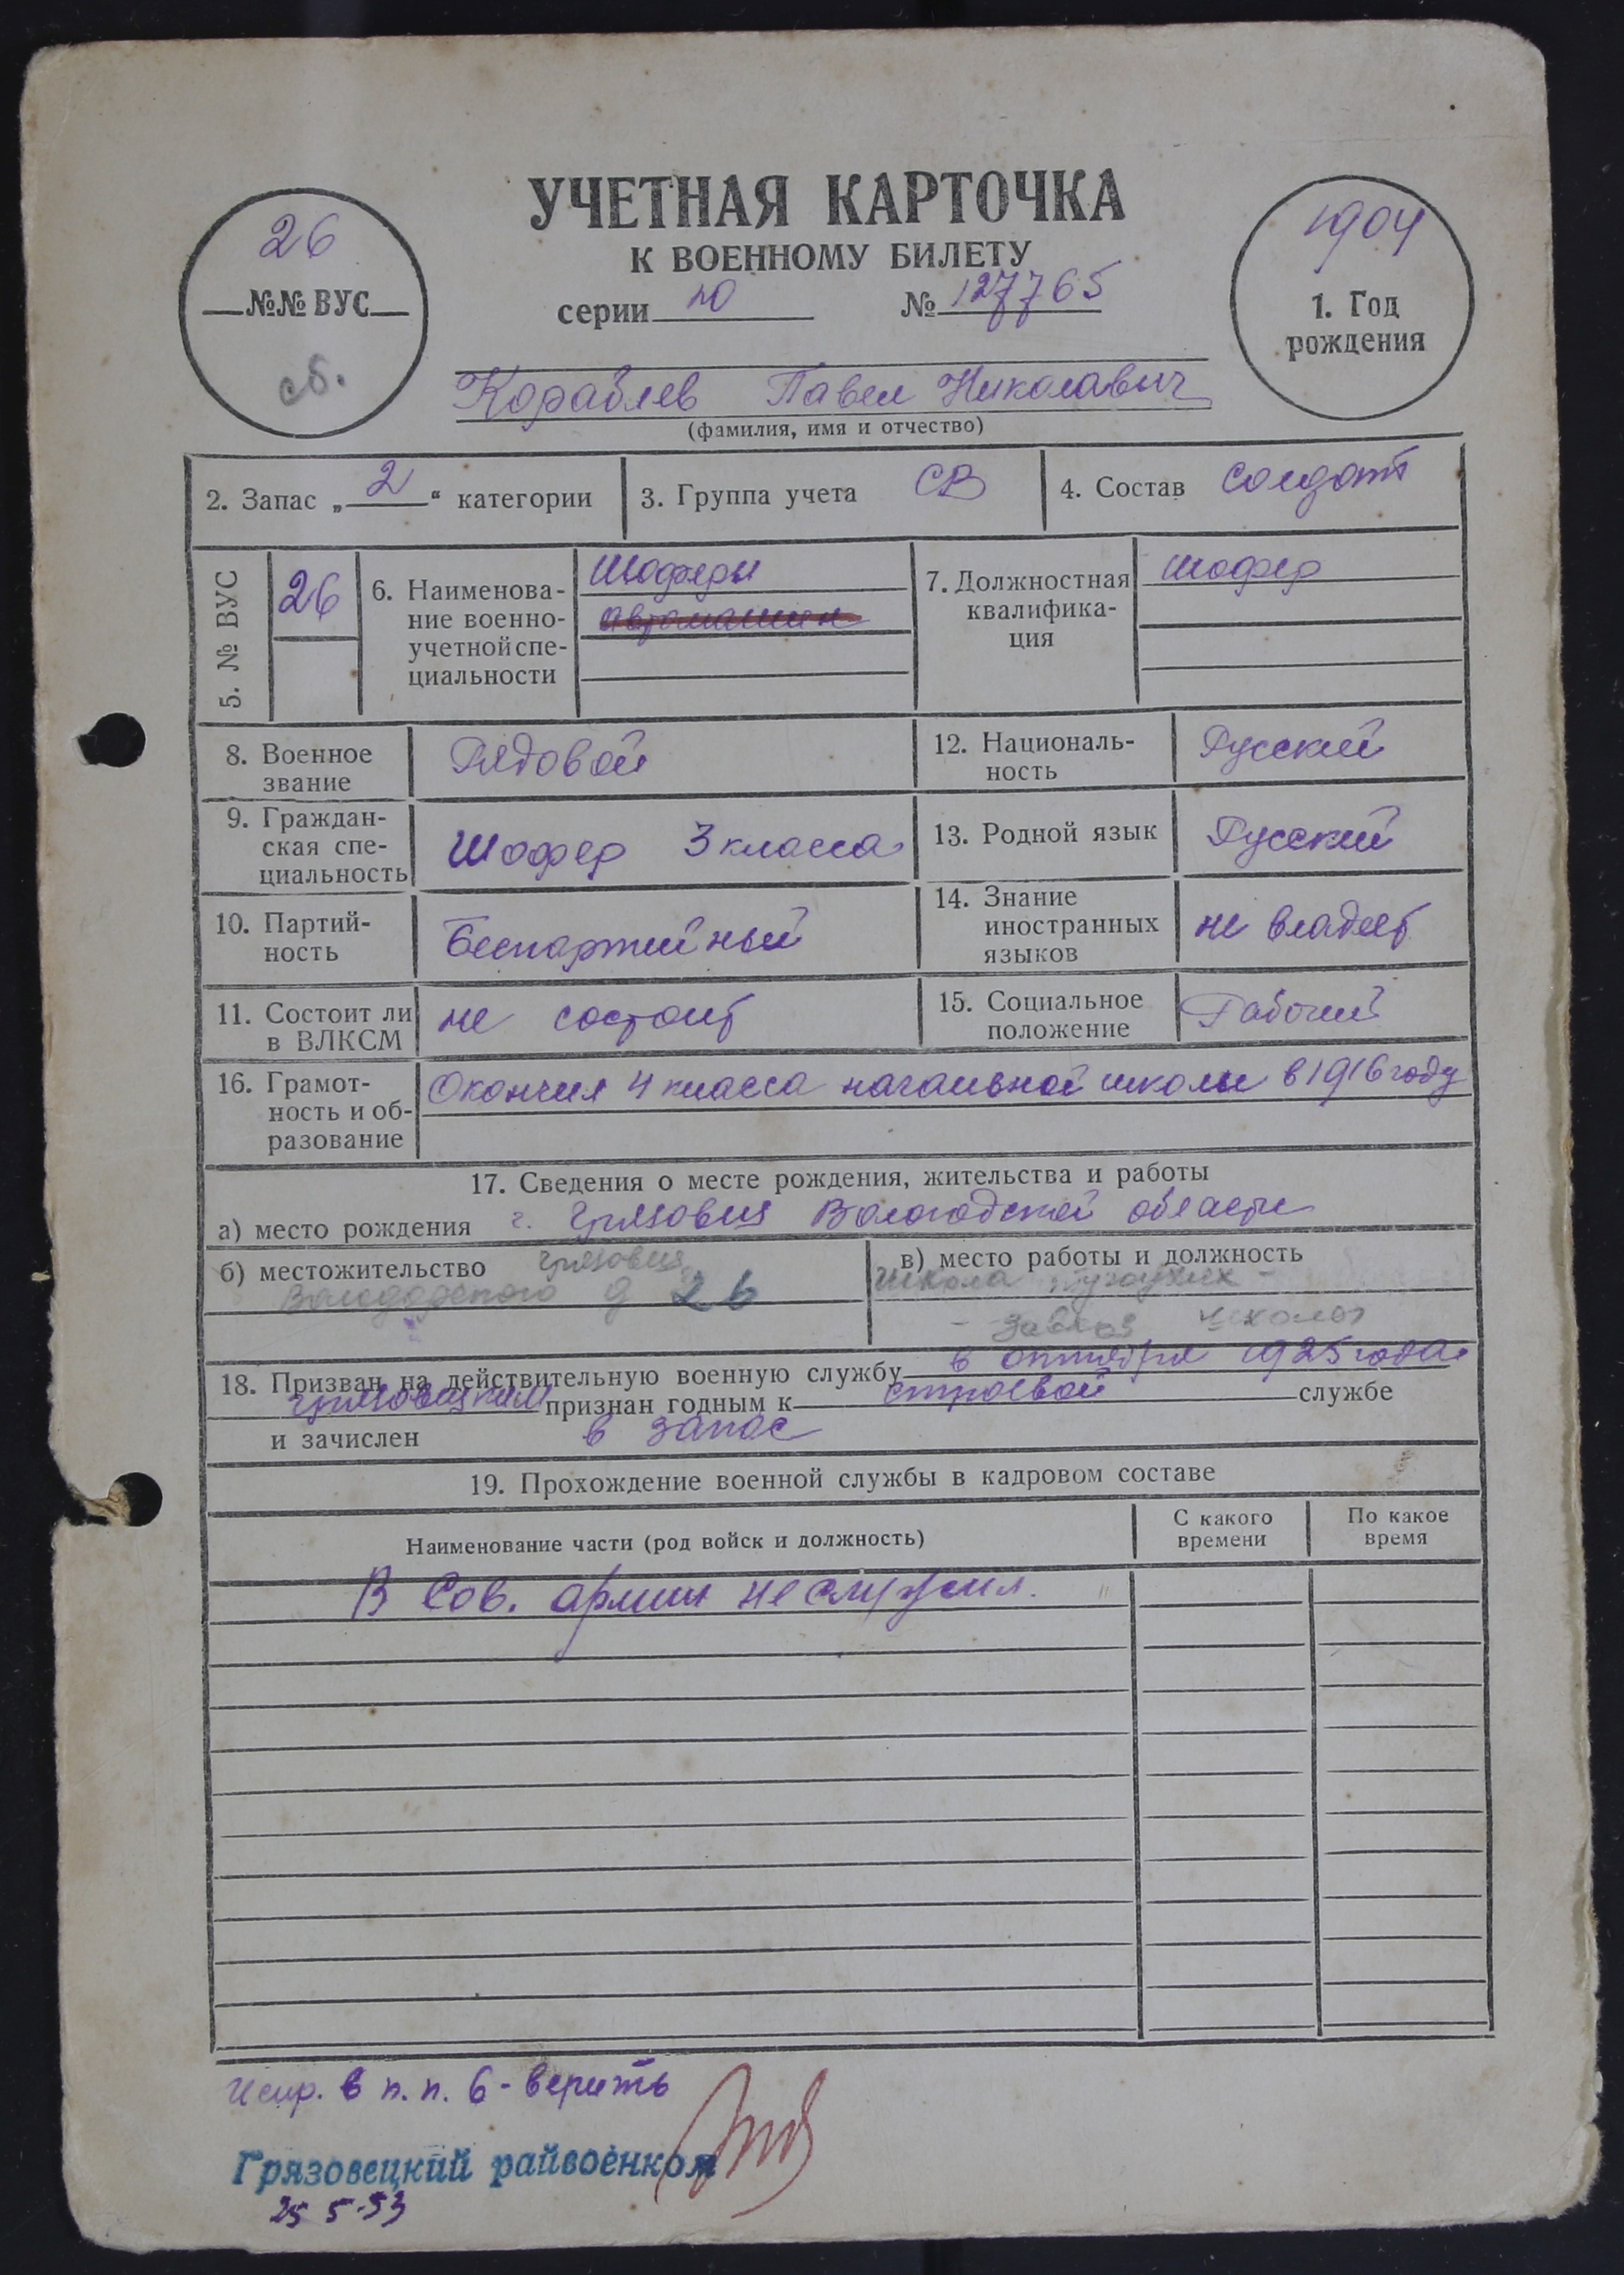 УЧЕТНАЯ КАРТОЧКА
К ВОЕННОМУ БИЛЕТУ
серии № 127765
26
№№ ВУС
сб.
1904
1. Год
рождения
Кораблев Павел Николавич
(фамилия, имя и отчество)
2. Запас „ 2 “ категории
3. Группа учета СВ
4. Состав солдат
5. № ВУС
26
6. Наименова-
ние военно-
учетной спе-
циальности
Шоферы
автомашин
7. Должностная
квалифика-
ция
шофер
8. Военное
звание
Рядовой
12. Националь-
ность
Русский
9. Граждан-
ская спе-
циальность
Шофер 3 класса
13. Родной язык
Русский
10. Партий-
ность
Беспартийный
14. Знание
иностранных
языков
не владеет
11. Состоит ли
в ВЛКСМ
не состоит
15. Социальное
положение
Рабочий
16. Грамот-
ность и об-
разование
Окончил 4 класса начальной школы в 1916 году
17. Сведения о месте рождения, жительства и работы
а) место рождения г. Грязовец Вологодской области
б) местожительство Грязовец
д 26
в) место работы и должность
Школа глухих -
- завхоз школы
18. Призван на действительную военную службу в октябре 1925 года
Грязовецким признан годным к строевой службе
и зачислен в запас
19. Прохождение военной службы в кадровом составе
Наименование части (род войск и должность)
С какого
времени
По какое
время
В Сов. армии не служил.
Испр. в п.п. 6 - верить
Грязовецкий райвоенком
25 5-53